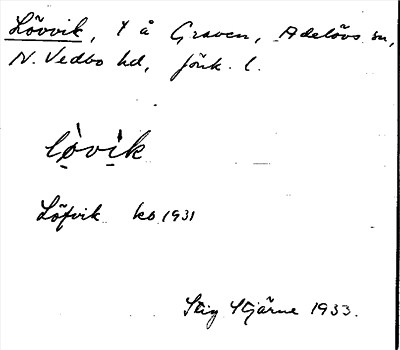 Lövvik, t å Graven, Adelövs sn,
N. Vedbo hd, Jönk. l.
lòvi̇̀k
Löfvik kb 1931
Stig Stjärne 1933.